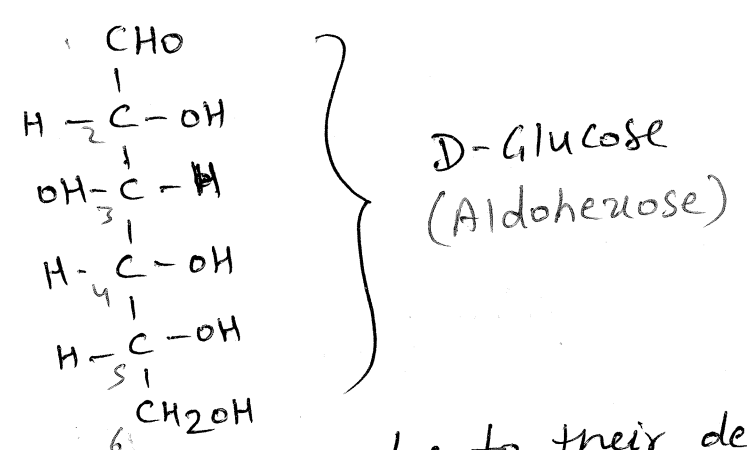 CHO
|
H - C - OH
2
|
OH - C - H
3
|
H - C - OH
4
|
H - C - OH
5
|
CH2OH
6
D-Glucose
(Aldohexose)
to their de